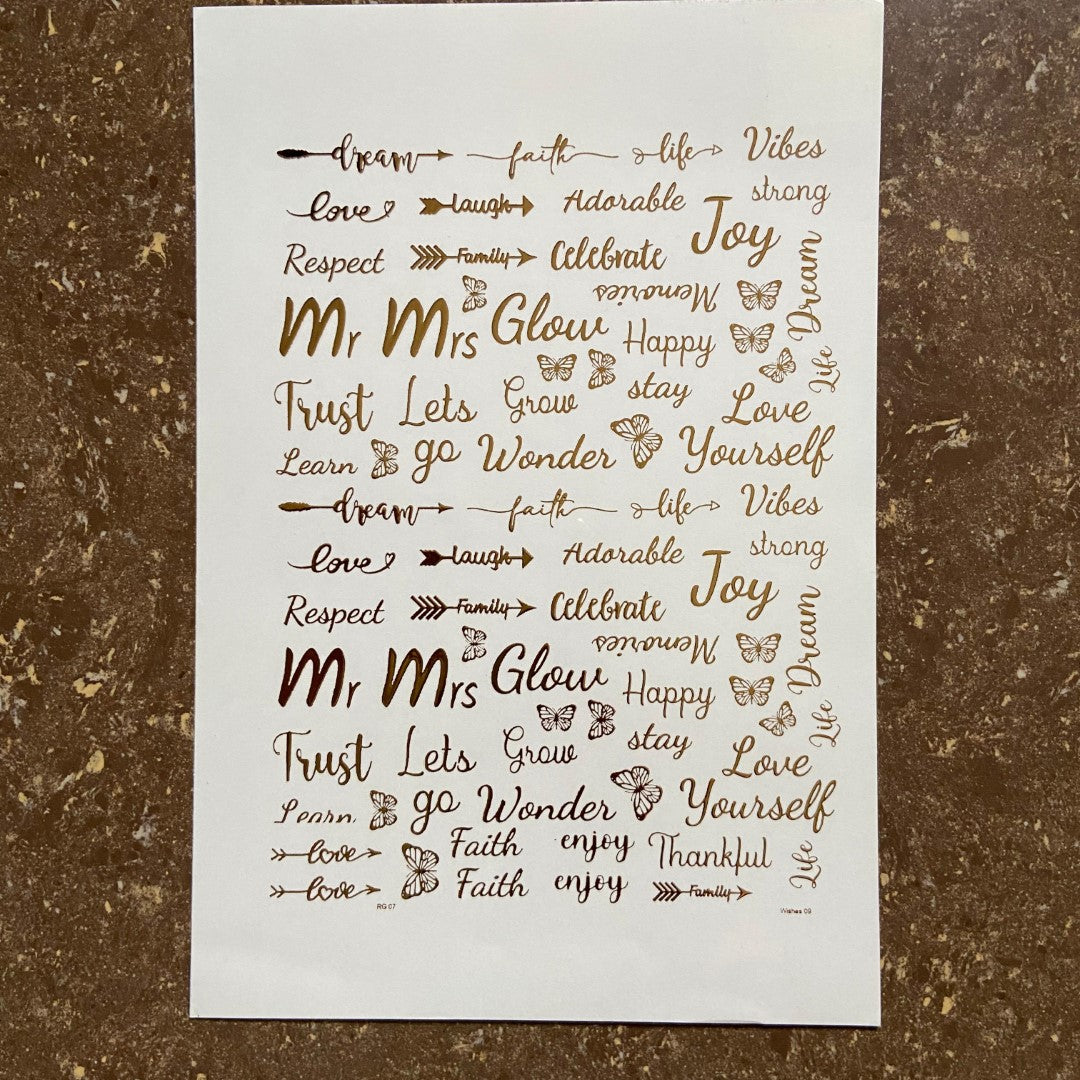 dream faith life Vibes
love laugh Adorable strong
Joy
Respect Family Celebrate
Memories Dream
Mr Mrs Glow Happy
Life
Trust Lets Grow stay Love
Learn go Wonder Yourself
dream faith life Vibes
love laugh Adorable strong
Joy
Respect Family Celebrate
Memories Dream
Mr Mrs Glow Happy
Life
Trust Lets Grow stay Love
Learn go Wonder Yourself
love Faith enjoy Thankful Life
love Faith enjoy Family
RG 07 Wishes 09